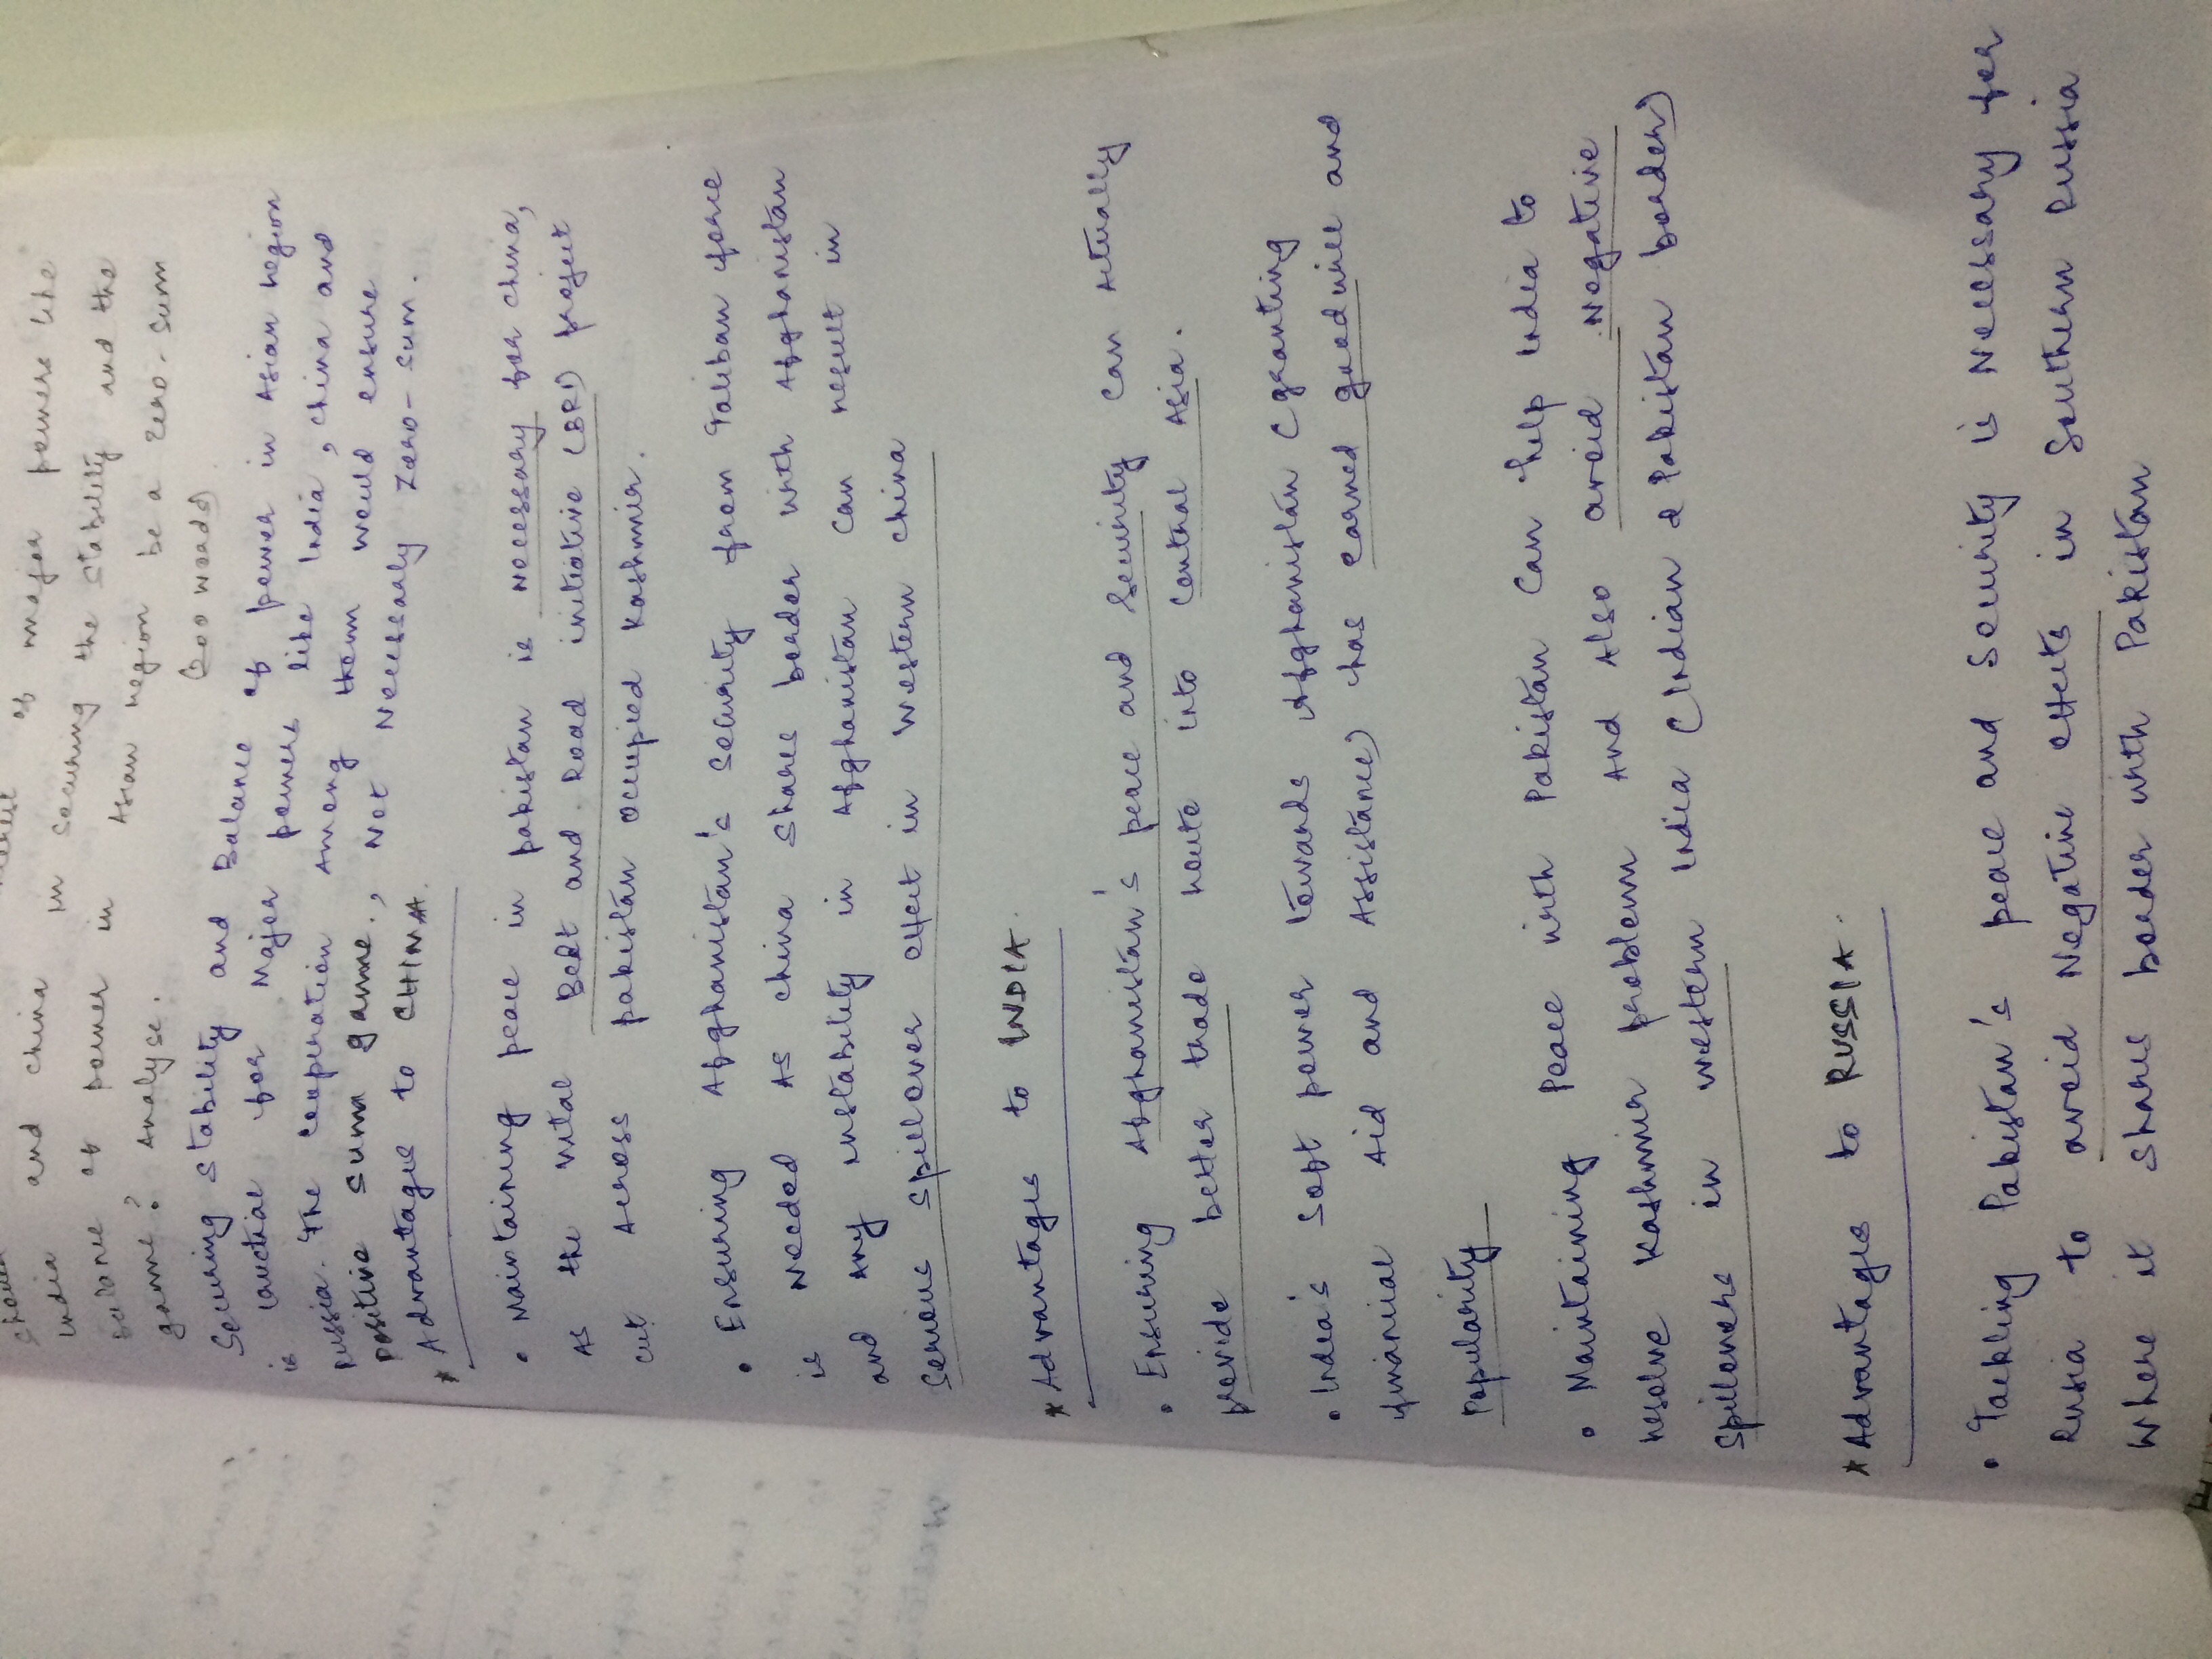 of major powers like
India and china in securing the stability and the
balance of power in Asian region be a zero-sum
game? Analyse. (200 words)
Securing stability and Balance of power in Asian region
is crucial for Major powers like India, china and
Russia. The cooperation Among them would ensure
positive sum game., Not Necessarly zero-sum.
* Advantages to CHINA.
• Maintaining peace in pakistan is necessary for china,
As the vital Belt and Road initiative (BRI) project
cut Across pakistan occupied Kashmir.
• Ensuring Afghanistan's security from Taliban force
is Needed As china shares border with Afghanistan
and Any instability in Afghanistan can result in
Serious spillover effect in Western china
* Advantages to INDIA.
• Ensuring Afghanistan's peace and Security can Actually
provide better trade route into Central Asia.
• India's soft power towards Afghanistan (granting
financial Aid and Assistance) has earned goodwill and
Popularity
• Maintaining Peace with Pakistan Can help India to
resolve Kashmir problem And Also avoid Negative
Spillovers in western India (Indian & Pakistan border)
* Advantages to RUSSIA.
• Tackling Pakistan's peace and Security is Necessary for
Rusia to avoid Negative effects in Southern Russia
where it shares border with Pakistan